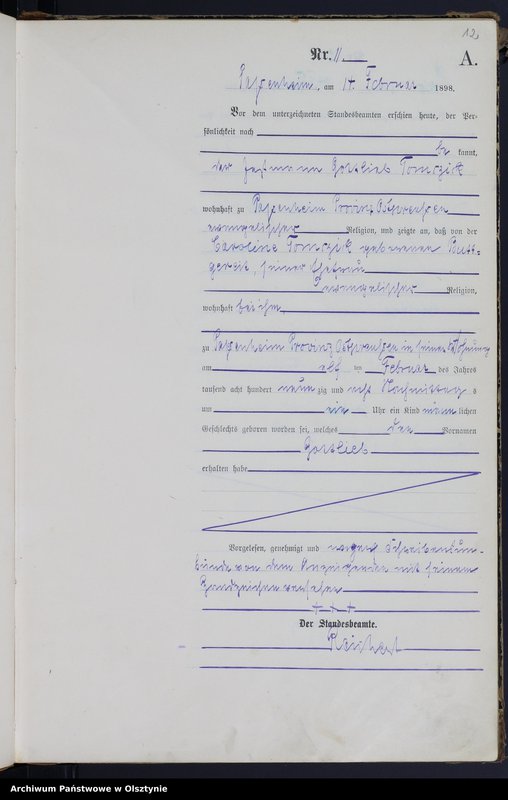 12.
Nr. 11.
A.
Pappenheim, am 14. Februar 1898.
Vor dem unterzeichneten Standesbeamten erschien heute, der Per-
sönlichkeit nach
be kannt,
der Gottlieb Tomszik
wohnhaft zu Pappenheim Provinz Ostpreußen
evangelischer Religion, und zeigte an, daß von der
Caroline Tomszik geborenen Butt-
gereit, seiner Ehefrau
evangelischer Religion,
wohnhaft bei ihm
zu Pappenheim Provinz Ostpreußen in seiner Wohnung
am elf ten Februar des Jahres
tausend acht hundert neun zig und acht Nachmittags
um ein Uhr ein Kind männ lichen
Geschlechts geboren worden sei, welches den Vornamen
Gottlieb
erhalten habe
Vorgelesen, genehmigt und wegen Schreibensun-
kunde von dem Anzeigenden mit seinem
Handzeichen versehen
+ + +
Der Standesbeamte.
Reichert
Archiwum Państwowe w Olsztynie